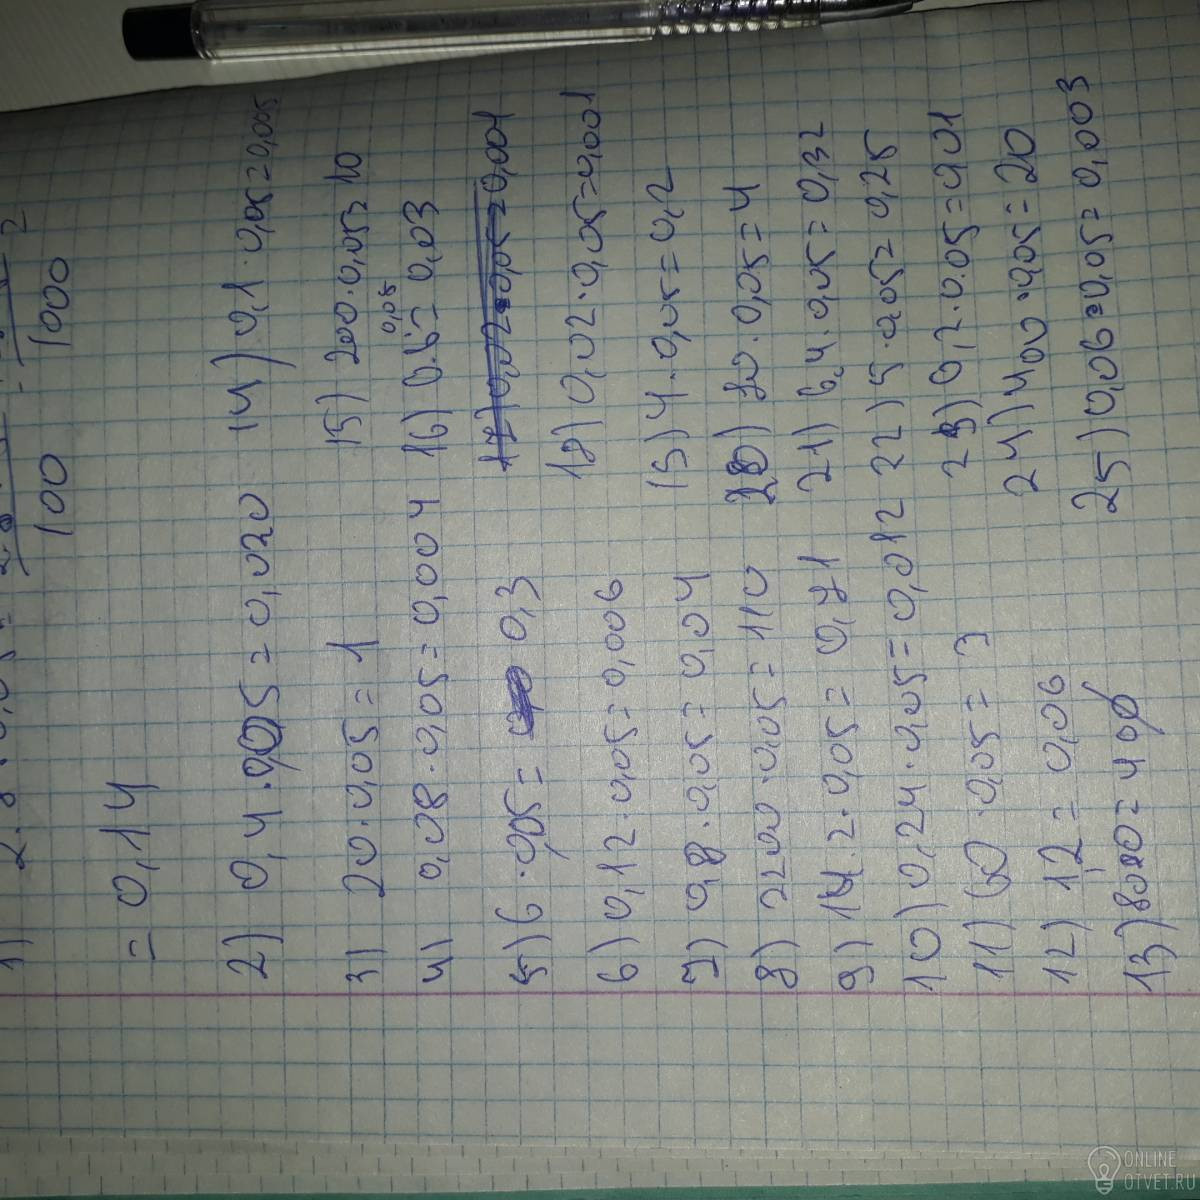 1) 2.8 · 0,05 =
100 · 1000
= 0,14
2) 0,4 · 0,05 = 0,020
3) 20 · 0,05 = 1
4) 0,08 · 0,05 = 0,004
5) 6 · 0,05 = 0,3
6) 0,12 · 0,05 = 0,006
7) 0,8 · 0,05 = 0,04
8) 2200 · 0,05 = 110
9) 14.2 · 0,05 = 0,71
10) 0,24 · 0,05 = 0,012
11) 60 · 0,05 = 3
12) 1,2 = 0,06
13) 80 = 4
14) 0,1 · 0,05 = 0,005
15) 200 · 0,05 = 10
16) 0.6 · 0,05 = 0,03
17) 0,02 · 0,05 = 0,001
18) 0,02 · 0,05 = 0,001
19) 4 · 0,05 = 0,2
20) 80 · 0,05 = 4
21) 6,4 · 0,05 = 0,32
22) 5 · 0,05 = 0,25
23) 0,2 · 0.05 = 0,01
24) 400 · 0,05 = 20
25) 0,06 · 0,05 = 0,003
ONLINE
OTVET.RU